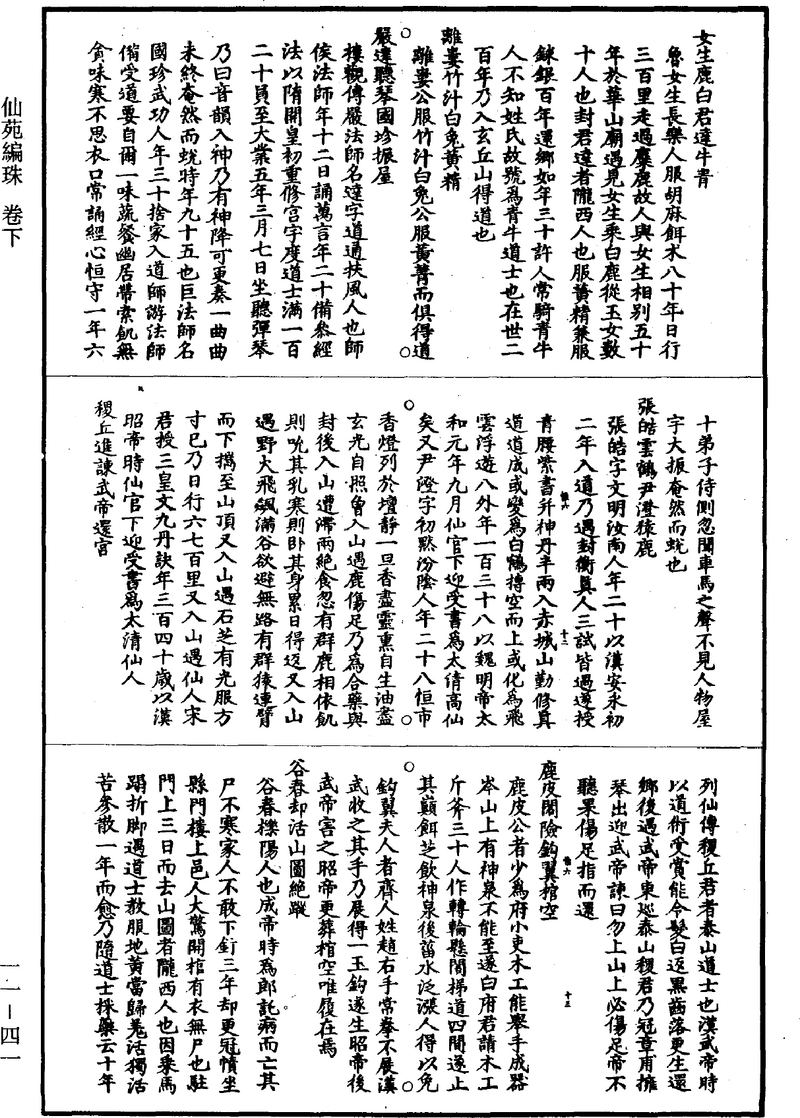 仙苑編珠 卷下
女生鹿白君達牛青
魯女生長樂人服胡麻餌朮八十年日行
三百里走過麞鹿故人與女生相別五十
年於華山廟遇見女生乘白鹿從玉女數
十人也封君達者隴西人也服黃精兼服
鍊銀百年還鄉如年三十許人常騎青牛
人不知姓氏故號爲青牛道士也在世二
百年乃入玄丘山得道也
離婁竹汁白兔黃精
離婁公服竹汁白兔公服黃菁而俱得道
嚴達聽琴國珍振屋
樓觀傳嚴法師名達字道通扶風人也師
侯法師年十二日誦萬言年二十備參經
法以隋開皇初重修宮宇度道士滿一百
二十員至大業五年三月七日坐聽彈琴
乃曰音韻入神乃有神降可更奏一曲曲
未終奄然而蛻時年九十五也巨法師名
國珍武功人年三十捨家入道師游法師
備受道要自爾一味蔬餐幽居帶索飢無
貪味寒不思衣口常誦經心恒守一年六
十弟子侍側忽聞車馬之聲不見人物屋
宇大振奄然而蛻也
張皓雲鶴尹澄猿鹿
張皓字文明汝南人年二十以漢安永初
二年入道乃遇封衡真人三試皆過遂授
青腰紫書并神丹半兩入赤城山勤修真
道道成或變爲白鶴摶空而上或化爲飛
雲浮遊八外年一百三十八以魏明帝太
和元年九月仙官下迎受書爲太清高仙
矣又尹澄字初默汾陰人年二十八恒市
香燈列於壇靜一旦香盡靈熏自生油盡
玄光自照曾入山遇鹿傷足乃爲合藥與
封後入山遭滯雨絶食忽有群鹿相依飢
則吮其乳寒則卧其身累日得返又入山
遇野火飛飆滿谷欲避無路有群猿連臂
而下攜至山頂又入山遇石芝有光服方
寸匕乃日行六七百里又入山遇仙人宋
君授三皇文九丹訣年三百四十歲以漢
昭帝時仙官下迎受書爲太清仙人
稷丘進諫武帝還宮
列仙傳稷丘君者泰山道士也漢武帝時
以道術受賞能令髮白返黑齒落更生還
鄉後遇武帝東巡泰山稷君乃冠章甫擁
琴出迎武帝諫曰勿上山上必傷足帝不
聽果傷足指而還
鹿皮閣險鈎翼棺空
鹿皮公者少爲府小吏木工能舉手成器
岑山上有神泉不能至遂白府君請木工
斤斧三十人作轉輪懸閣梯道四間遂上
其巔餌芝飲神泉後菑水泛漲人得以免
鈎翼夫人者齊人姓趙右手常拳不展漢
武收之其手乃展得一玉鈎遂生昭帝後
武帝害之昭帝更葬棺空唯履在焉
谷春却活山圖絶蹤
谷春櫟陽人也成帝時爲郎託病而亡其
尸不寒家人不敢下釘三年却更冠幘坐
縣門樓上邑人大驚開棺有衣無尸也駐
門上三日而去山圖者隴西人也因乘馬
蹋折脚遇道士教服地黃當歸羌活獨活
苦參散一年而愈乃隨道士採藥云十年
一一－四一